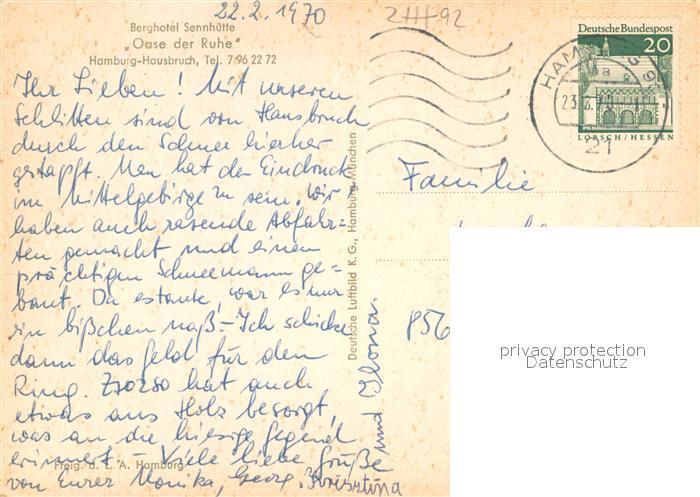 22.2.1970
2HH92
Berghotel Sennhütte
"Oase der Ruhe"
Hamburg-Hausbruch, Tel. 7 96 22 72
Ihr Lieben! Mit unseren
Schlitten sind von Hausbruch
durch den Schnee hierher
gestapft. Man hat den Eindruck
im Mittelgebirge zu sein. Wir
haben auch rasende Abfahr=
ten gemacht und einen
prächtigen Schneemann ge=
baut. Da es taute, war es nur
ein bißchen naß. – Ich schicke
dann das Geld für den
Ring. Zsozso hat auch
etwas aus Holz besorgt,
was an die hiesige Gegend
erinnert – Viele liebe Grüße
von Eurer Monika, Georg, Krisztina
und Ilona.
Freig. d. L. A. Hamburg
Deutsche Luftbild K. G., Hamburg-München
Deutsche Bundespost
20
LORSCH/HESSEN
HAMBURG
21
Familie
856
privacy protection
Datenschutz